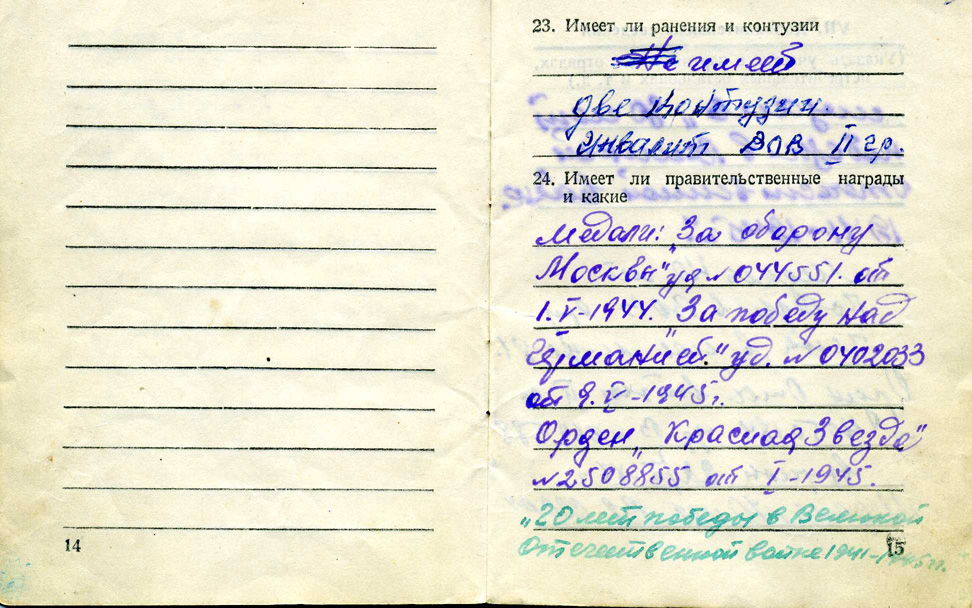 23. Имеет ли ранения и контузии
имеет
две контузии.
Инвалит ВОВ II гр.
24. Имеет ли правительственные награды
и какие
Медали: „За оборону
Москвы" уд № 044551. от
1.V-1944. „За победу над
Германией." уд. № 0402033
от 9.V-1945г.
Орден „Красная Звезда"
№2508855 от I-1945.
„20 лет победы в Великой
Отечественной войне 1941-1945гг.
14
15